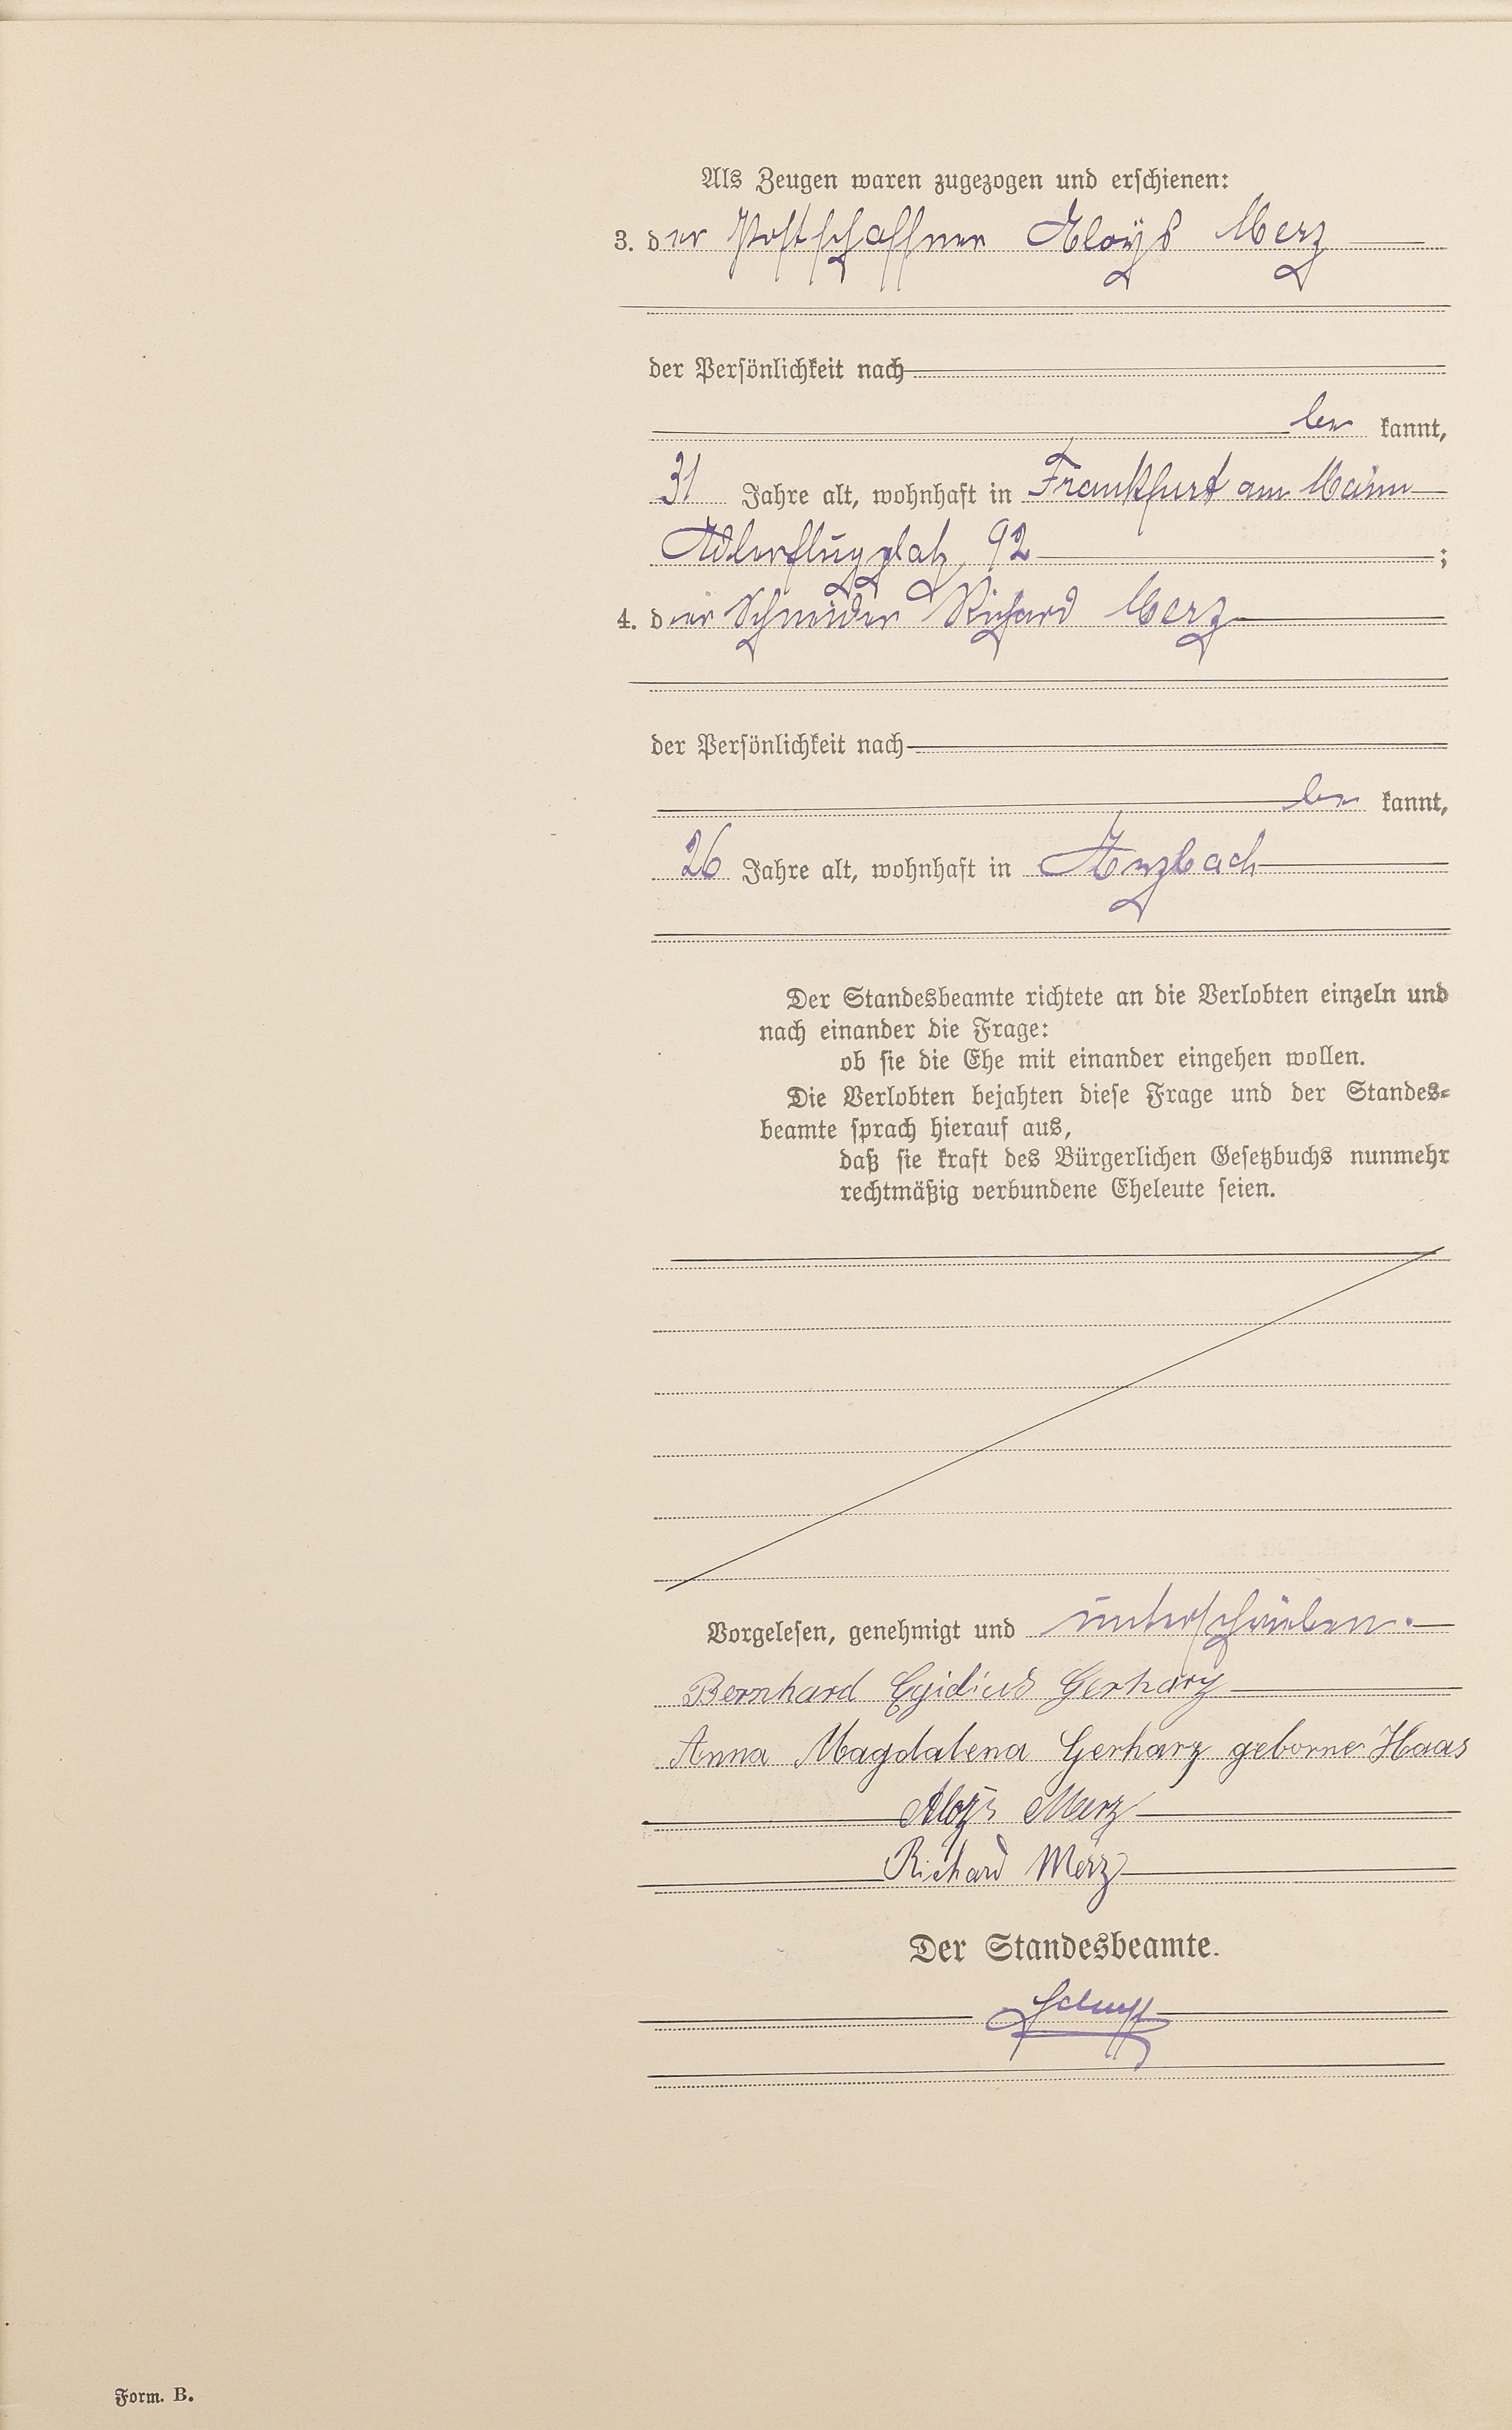 Als Zeugen waren zugezogen und erschienen:
3. der Postschaffner Aloÿs Merz
der Persönlichkeit nach
be kannt,
31 Jahre alt, wohnhaft in Frankfurt am Main
Adlerflugplatz 92 ;
4. der Schneider Richard Merz
der Persönlichkeit nach
be kannt,
26 Jahre alt, wohnhaft in Arzbach
Der Standesbeamte richtete an die Verlobten einzeln und
nach einander die Frage:
ob sie die Ehe mit einander eingehen wollen.
Die Verlobten bejahten diese Frage und der Standes=
beamte sprach hierauf aus,
daß sie kraft des Bürgerlichen Gesetzbuchs nunmehr
rechtmäßig verbundene Eheleute seien.
Vorgelesen, genehmigt und unterschrieben.
Bernhard Egidius Gerharz
Anna Magdalena Gerharz geborne Haas
Aloÿs Merz
Richard Merz
Der Standesbeamte.
Form. B.